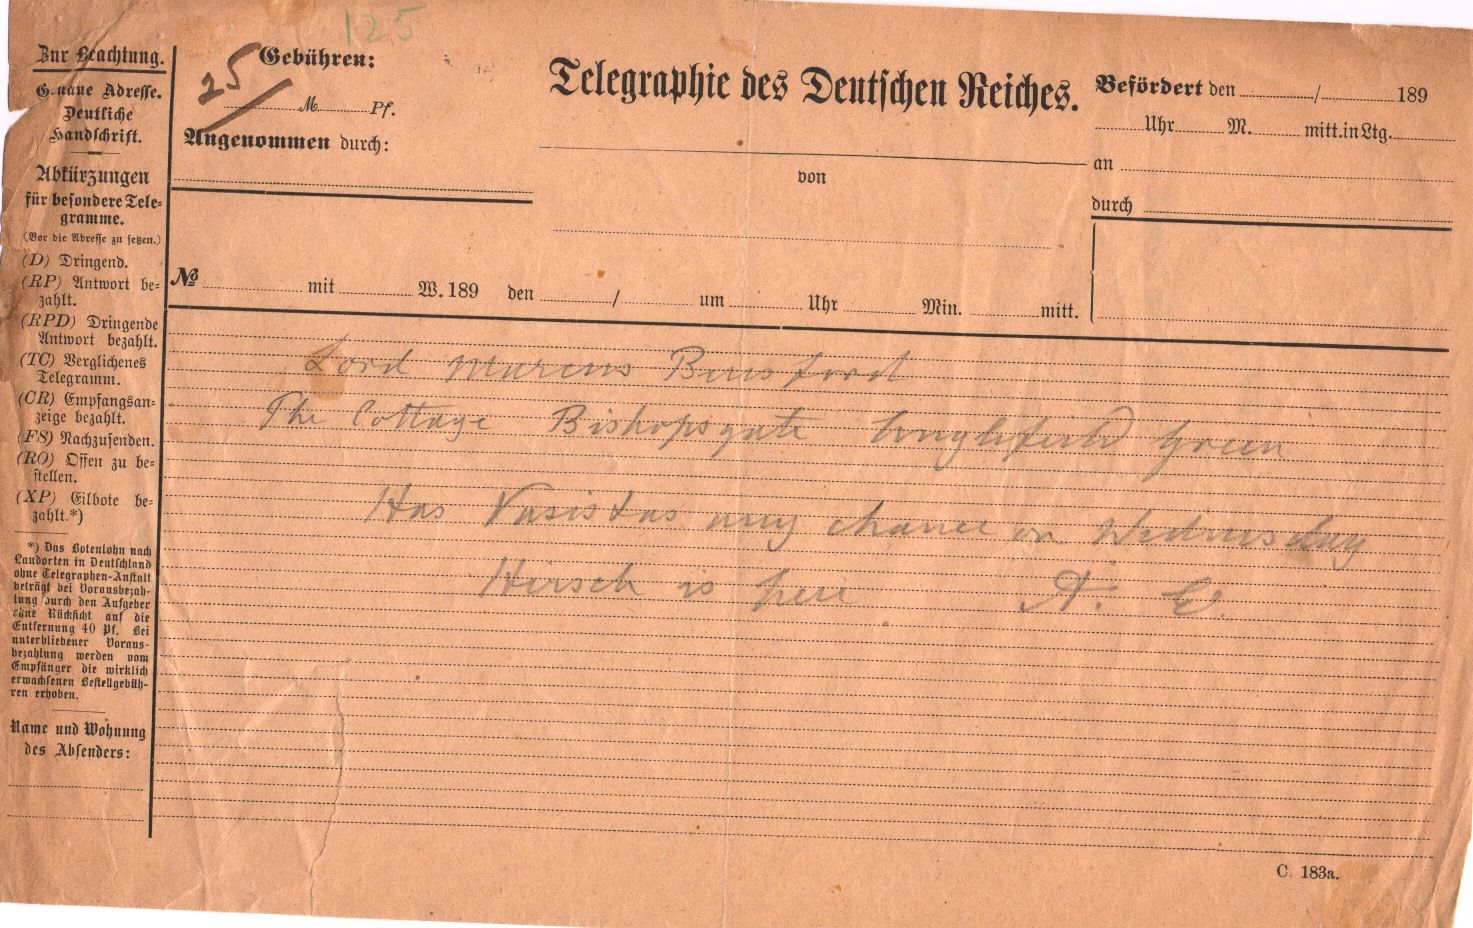 125
Zur Beachtung.
Genaue Adresse.
Deutliche
Handschrift.
Abkürzungen
für besondere Tele-
gramme.
(Vor die Adresse zu setzen.)
(D) Dringend.
(RP) Antwort be-
zahlt.
(RPD) Dringende
Antwort bezahlt.
(TC) Verglichenes
Telegramm.
(CR) Empfangsan-
zeige bezahlt.
(FS) Nachzusenden.
(RO) Offen zu be-
stellen.
(XP) Eilbote be-
zahlt.*)
*) Das Botenlohn nach
Landorten in Deutschland
ohne Telegraphen-Anstalt
beträgt bei Vorausbezah-
lung durch den Aufgeber
ohne Rücksicht auf die
Entfernung 40 Pf. Bei
unterbliebener Voraus-
bezahlung werden vom
Empfänger die wirklich
erwachsenen Bestellgebüh-
ren erhoben.
Name und Wohnung
des Absenders:
25
Gebühren:
M. Pf.
Angenommen durch:
Telegraphie des Deutschen Reiches.
von
Befördert den / 189
Uhr M. mitt. in Ltg.
an
durch
№ mit W. 189 den / um Uhr Min. mitt.
Lord Marcus Beresford
The Cottage Bishopsgate Englefield Green
Has Vasistas any chance on Wednesday
Hirsch is here A. E.
C. 183a.